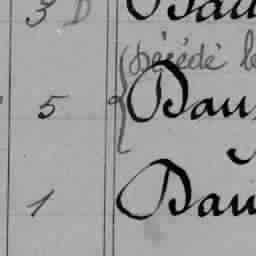 3 D Dau
décédé le
5 Dau
1 Dau